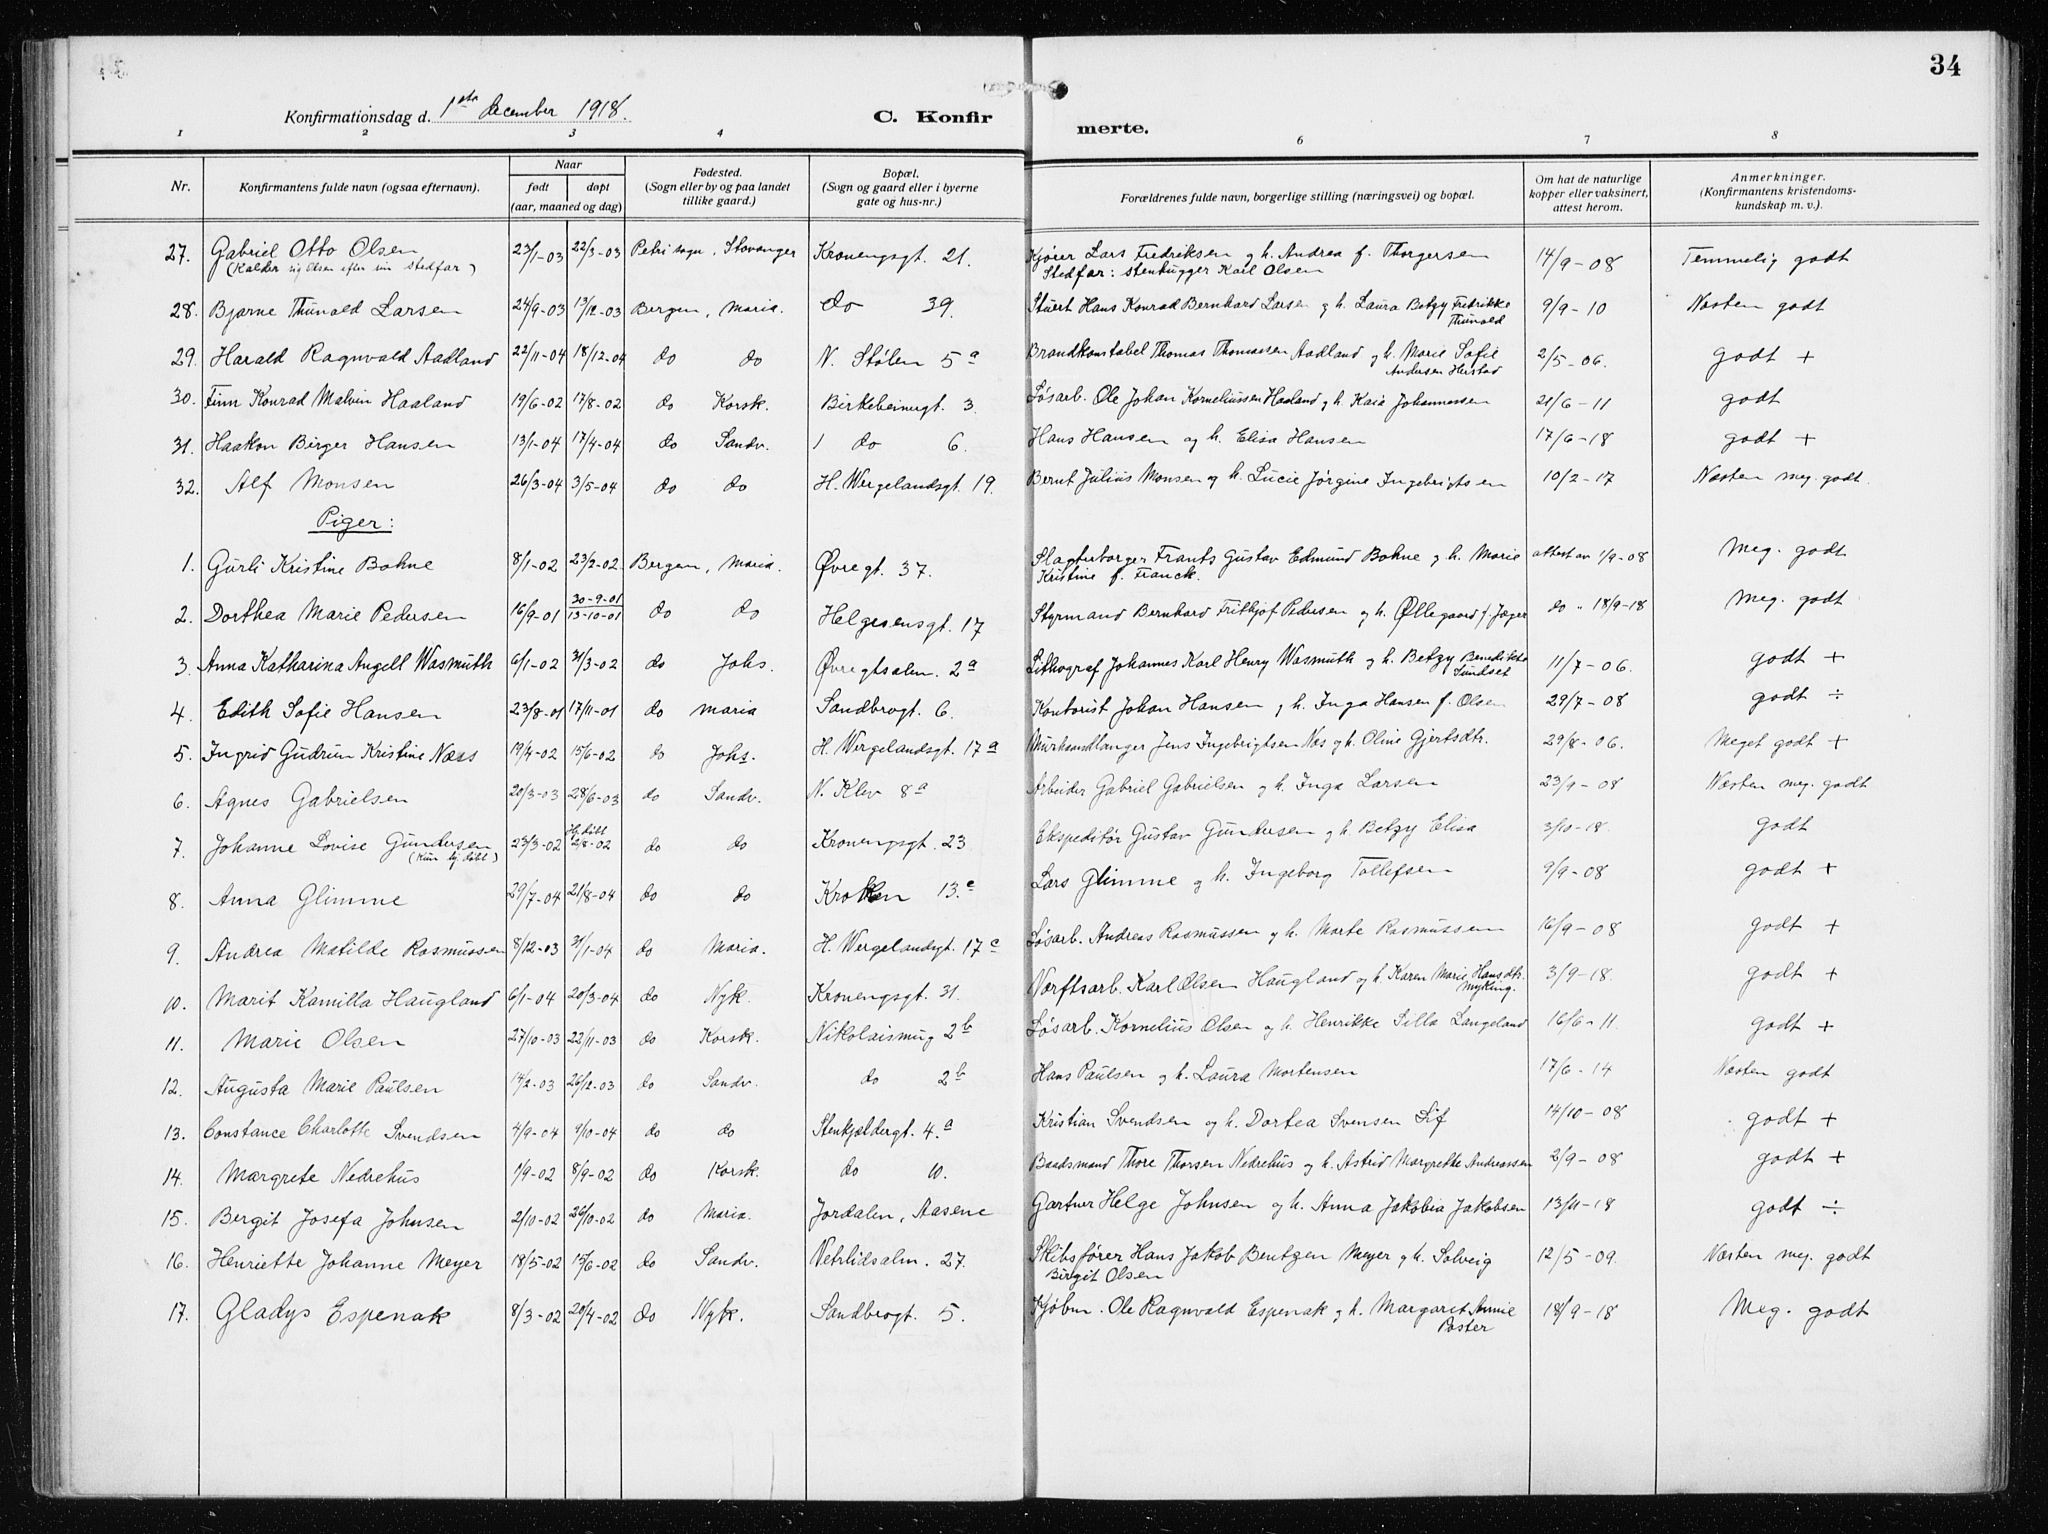 34
Konfirmationsdag d. 1ste december 1918. C. Konfirmerte.
1 2 3 4 5 6 7 8
Nr. Konfirmantens fulde navn (ogsaa efternavn). Naar født døpt (aar, maaned og dag) Fødested. (Sogn eller by og paa landet tillike gaard.) Bopæl. (Sogn og gaard eller i byerne gate og hus-nr.) Forældrenes fulde navn, borgerlige stilling (næringsvei) og bopæl. Om hat de naturlige kopper eller vaksinert, attest herom. Anmerkninger. (Konfirmantens kristendoms-kundskap m. v.).
27. Gabriel Otto Olsen 23/1-03 22/3-03 Petri sogn, Stavanger Kronengsgt. 21. Kjører Lars Fredriksen g h. Andrea f. Thorgersen 14/9-08 Temmelig godt
(Kalder sig Olsen efter sin stedfar) Stedfar: stenhugger Karl Olsen
28. Bjarne Thunold Larsen 24/9-03 13/12-03 Bergen, Maria. do 39. Stuert Hans Konrad Bernhard Larsen g h. Laura Betzy Fredrikke Thunold 9/9-10 Næsten godt
29. Harald Ragnvald Aadland 22/11-04 18/12-04 do do N. Stølen 5a Brandkonstabel Thomas Thomassen Aadland g h. Marie Sofie Andersen Herstad 2/5-06. godt +
30. Finn Konrad Malvin Haaland 19/6-02 17/8-02 do Korsk. Birkebeinergt. 3. Løsarb. Ole Johan Korneliussen Haaland g h. Kaia Johannessen 21/6-11 godt
31. Haakon Birger Hansen 13/1-04 17/4-04 do Sandv. 1 do 6. Hans Hansen og h. Elisa Hansen 17/6-18 godt +
32. Alf Monsen 26/3-04 3/5-04 do do H. Wergelandsgt. 19. Bernt Julius Monsen og h. Lucie Jørgine Ingebrigtsen 10/2-17 Næsten meg. godt.
Piger:
1. Gurli Kristine Bohne 8/1-02 23/2-02 Bergen, Maria. Øvregt. 37. Slagterborger Frants Gustav Edmund Bohne g h. Marie Kristine f. Franck. attest av 1/9-08 Meg. godt
2. Dorthea Marie Pedersen 16/9-01 30-9-01 13-10-01 do do Helgesensgt. 17 Styrmand Bernhard Fritkjof Pedersen g h. Øllegaard f. Jæger do " 18/9-18 Meg. godt
3. Anna Katharina Angell Wasmuth 6/1-02 31/3-02 do Johs. Øvregtsalm. 2a Lithograf Johannes Karl Henry Wasmuth g h. Betzy Benedikte Sundset 11/7-06. godt +
4. Edith Sofie Hansen 23/8-01 17/11-01 do Maria Sandbrogt. 6. Kontorist Johan Hansen g h. Inga Hansen f. Olsen 29/7-08 godt ÷
5. Ingrid Gudrun Kristine Næss 19/4-02 15/6-02 do Johs. H. Wergelandsgt. 17a Murhaandlanger Jens Ingebrigtsen Næs g h. Oline Gjertsdtr. 29/8-06. Meget godt +
6. Agnes Gabrielsen 20/3-03 28/6-03 do Sandv. N. Klev 8a Arbeider Gabriel Gabrielsen g h. Inga Larsen 23/9-08 Næsten meg. godt
7. Johanne Lovise Gundersen 23/3-02 Hj. døbt 2/8-02 do do Kronengsgt. 23 Ekspeditør Gustav Gundersen g h. Betzy Elisa 3/10-18. godt
(Kun hj. døbt)
8. Anna Glimme 29/7-04 21/8-04 do do Krokken 13.c Lars Glimme g h. Ingeborg Tollefsen 9/9-08 godt +
9. Andrea Matilde Rasmussen 8/12-03 31/1-04 do Maria. H. Wergelandsgt. 17c Løsarb. Andreas Rasmussen g h. Marte Rasmussen 16/9-08 godt +
10. Marit Kamilla Haugland 6/1-04 20/3-04 do Nyk. Kronengsgt. 31. Værftsarb. Karl Olsen Haugland g h. Karen Marie Hansdtr. Myking. 3/9-18. godt +
11. Marie Olsen 27/10-03 22/11-03 do Korsk. Nikolaismug 2b Løsarb. Kornelius Olsen g h. Henrikke Silla Langeland 16/6-11. godt +
12. Augusta Marie Paulsen 14/2-03 26/2-03 do Sandv. do 2b Hans Paulsen g h. Laura Mortensen 17/6-14 Næsten godt
13. Constance Charlotte Svendsen 4/9-04 9/10-04 do do Stenkjeldergt. 4.a Kristian Svendsen og h. Dortea Svensen Sif 14/10-08 godt +
14. Margrete Nedrehus 1/9-02 8/9-02 do Korsk. do 10. Baadsmand Thore Thorsen Nedrehus g h. Astrid Margrette Andreassen 2/9-08 godt +
15. Bergit Josefa Johnsen 2/10-02 26/10-02 do Maria. Jordalen, Aasene Gartner Helge Johnsen g h. Anna Jakobia Jakobsen 13/11-18 godt ÷
16. Henriette Johanne Meyer 18/5-02 15/6-02 do Sandv. Vetrlidsalm. 27. Skibsfører Hans Jakob Bentzen Meyer g h. Solveig Birgit Olsen 12/5-09. Næsten meg. godt
17. Gladys Espenak 8/3-02 20/4-02 do Nyk. Sandbrogt. 5. Kjøbm. Ole Ragnvald Espenak g h. Margaret Annie Paster 18/9-18 Meg. godt